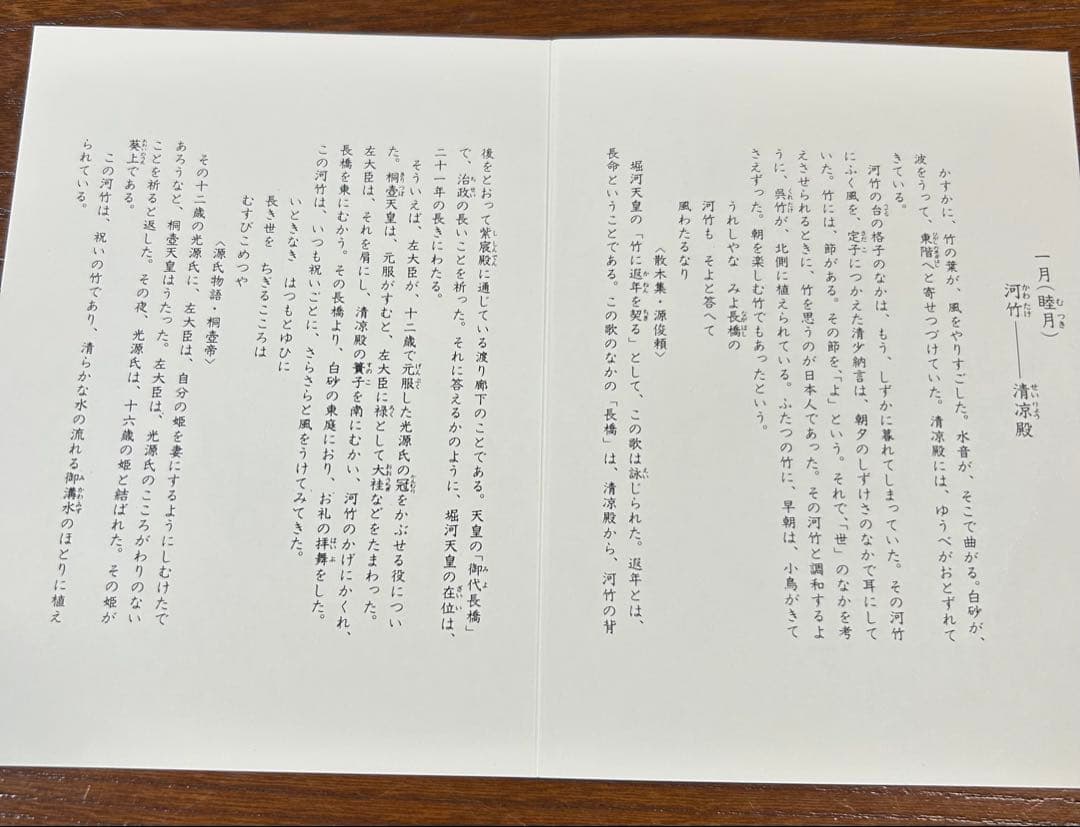 一月（睦月）
河竹――清凉殿
かすかに、竹の葉が、風をやりすごした。水音が、そこで曲がる。白砂が、
波をうって、東階へと寄せつづけていた。清凉殿には、ゆうべがおとずれて
きている。
河竹の台の格子のなかは、もう、しずかに暮れてしまっていた。その河竹
にふく風を、定子につかえた清少納言は、朝夕のしずけさのなかで耳にして
いた。竹には、節がある。その節を、「よ」という。それで、「世」のなかを考
えさせられるときに、竹を思うのが日本人であった。その河竹と調和するよ
うに、呉竹が、北側に植えられている。ふたつの竹に、早朝は、小鳥がきて
さえずった。朝を楽しむ竹でもあったという。
うれしやな　みよ長橋の
河竹も　そよと答へて
風わたるなり
〈散木集・源俊頼〉
堀河天皇の「竹に遐年を契る」として、この歌は詠じられた。遐年とは、
長命ということである。この歌のなかの「長橋」は、清凉殿から、河竹の背
後をとおって紫宸殿に通じている渡り廊下のことである。天皇の「御代長橋」
で、治政の長いことを祈った。それに答えるかのように、堀河天皇の在位は、
二十一年の長きにわたる。
そういえば、左大臣が、十二歳で元服した光源氏の冠をかぶせる役につい
た。桐壺天皇は、元服がすむと、左大臣に禄として大袿などをたまわった。
左大臣は、それを肩にし、清凉殿の簀子を南にむかい、河竹のかげにかくれ、
長橋を東にむかう。その長橋より、白砂の東庭におり、お礼の拝舞をした。
この河竹は、いつも祝いごとに、さらさらと風をうけてみてきた。
いときなき　はつもとゆひに
長き世を　ちぎるこころは
むすびこめつや
〈源氏物語・桐壺帝〉
その十二歳の光源氏に、左大臣は、自分の姫を妻にするようにしむけたで
あろうなと、桐壺天皇はうたった。左大臣は、光源氏のこころがわりのない
ことを祈ると返した。その夜、光源氏は、十六歳の姫と結ばれた。その姫が
葵上である。
この河竹は、祝いの竹であり、清らかな水の流れる御溝水のほとりに植え
られている。